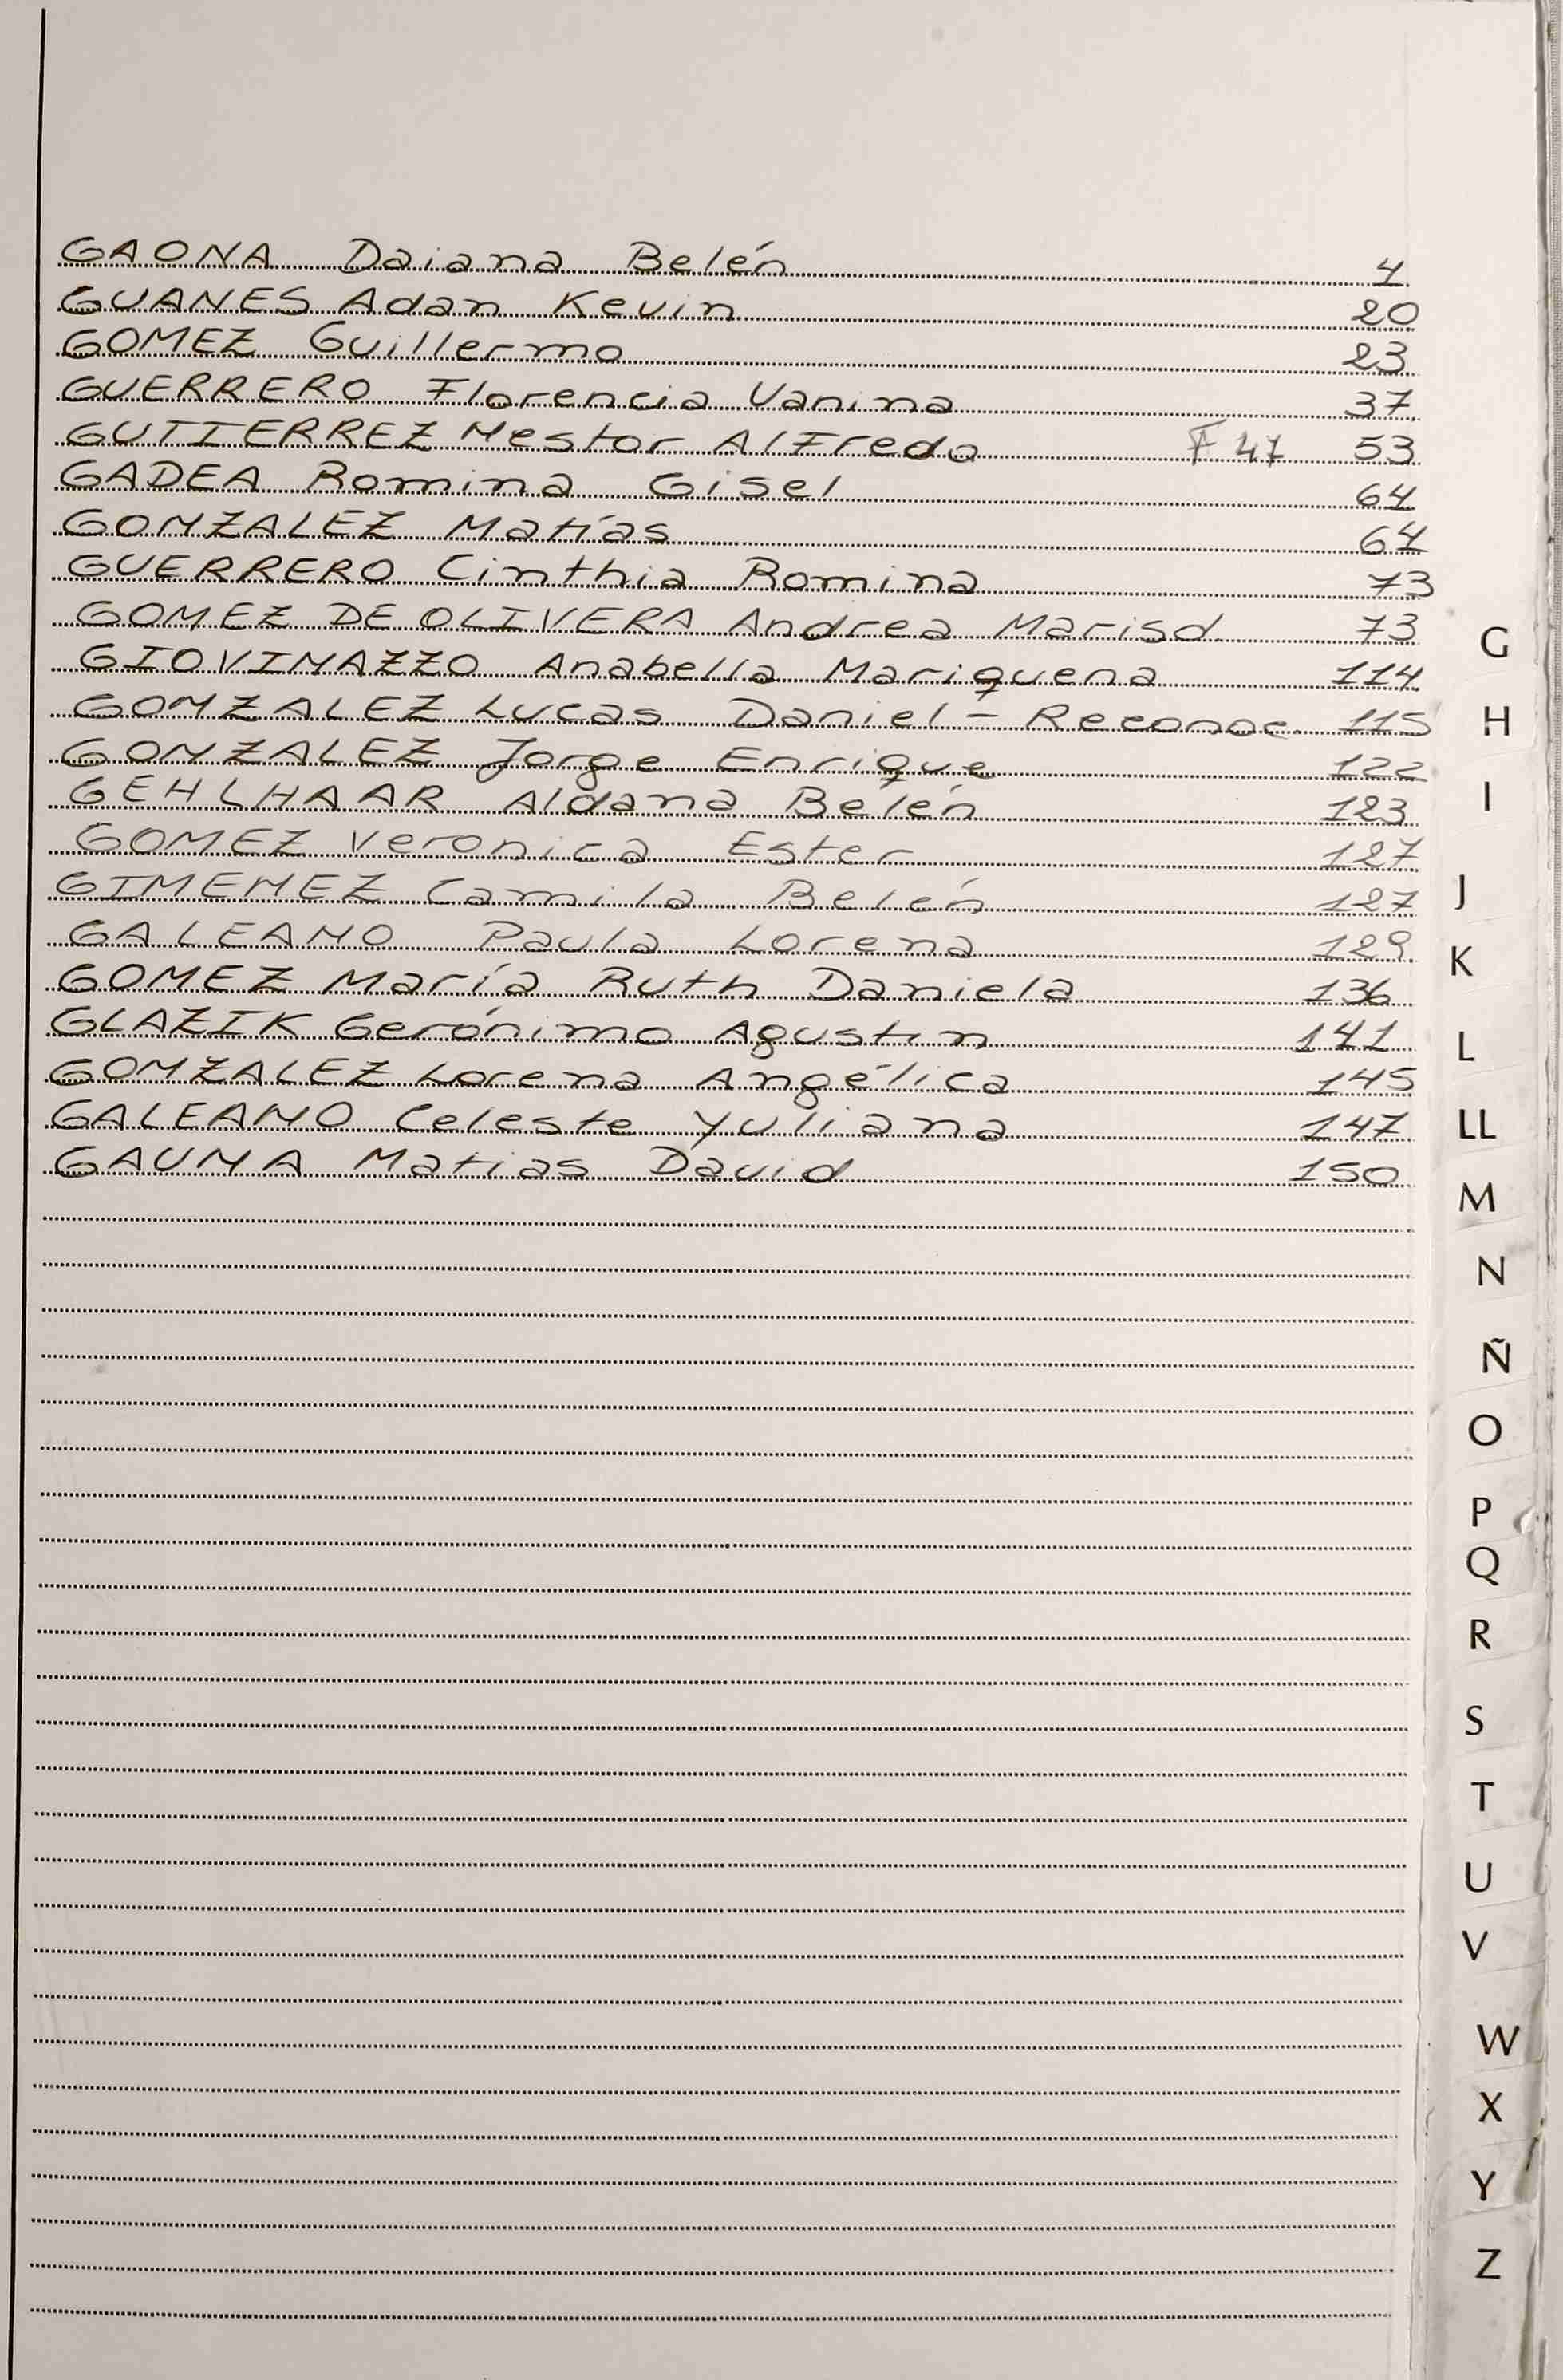 GAONA Daiana Belén 4
GUANES Adan Kevin 20
GOMEZ Guillermo 23
GUERRERO Florencia Vanina 37
GUTIERREZ Nestor Alfredo F 47 53
GADEA Romina Gisel 64
GONZALEZ Matías 64
GUERRERO Cinthia Romina 73
GOMEZ DE OLIVERA Andrea Marisol 73
GIOVINAZZO Anabella Mariquena 114
GONZALEZ Lucas Daniel - Reconoc. 115
GONZALEZ Jorge Enrique 122
GEHLHAAR Aldana Belén 123
GOMEZ Veronica Ester 127
GIMENEZ Camila Belén 127
GALEANO Paula Lorena 129
GOMEZ María Ruth Daniela 136
GLAZIK Gerónimo Agustin 141
GONZALEZ Lorena Angélica 145
GALEANO Celeste Yuliana 147
GAUNA Matias David 150
G
H
I
J
K
L
LL
M
N
Ñ
O
P
Q
R
S
T
U
V
W
X
Y
Z